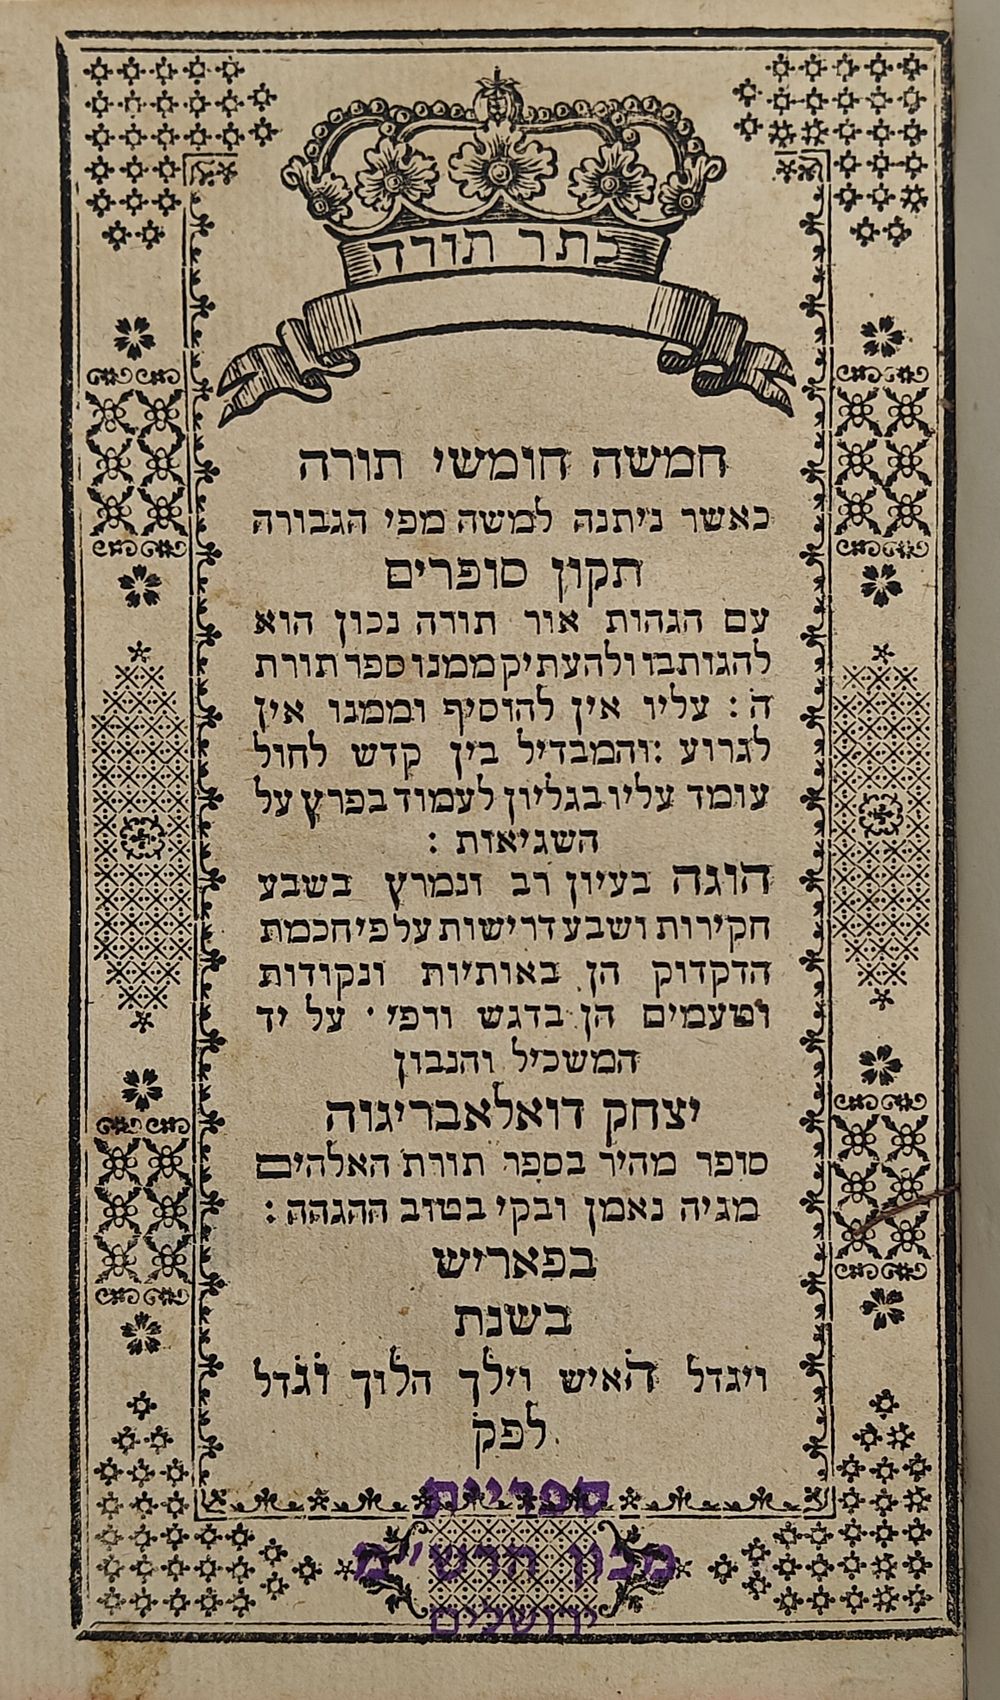 כתר תורה
חמשה חומשי תורה
כאשר ניתנה למשה מפי הגבורה
תקון סופרים
עם הגהות אור תורה נכון הוא
להגות בו ולהעתיק ממנו ספר תורת
ה׃ עליו אין להוסיף וממנו אין
לגרוע ׃ והמבדיל בין קדש לחול
עומד עליו בגליון לעמוד בפרץ על
השגיאות ׃
הוגה בעיון רב ונמרץ בשבע
חקירות ושבע דרישות על פי חכמת
הדקדוק הן באותיות ונקודות
וטעמים הן בדגש ורפי ' על יד
המשכיל והנבון
יצחק דואלאבריגוה
סופר מהיר בספר תורת האלהים
מגיה נאמן ובקי בטוב ההגהה ׃
בפאריש
בשנת
ויגדל האיש וילך הלוך וגדל
לפק
ספריית
מכון חרש"מ
ירושלים